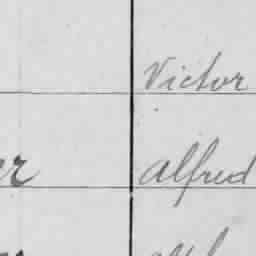 Victor
er Alfred